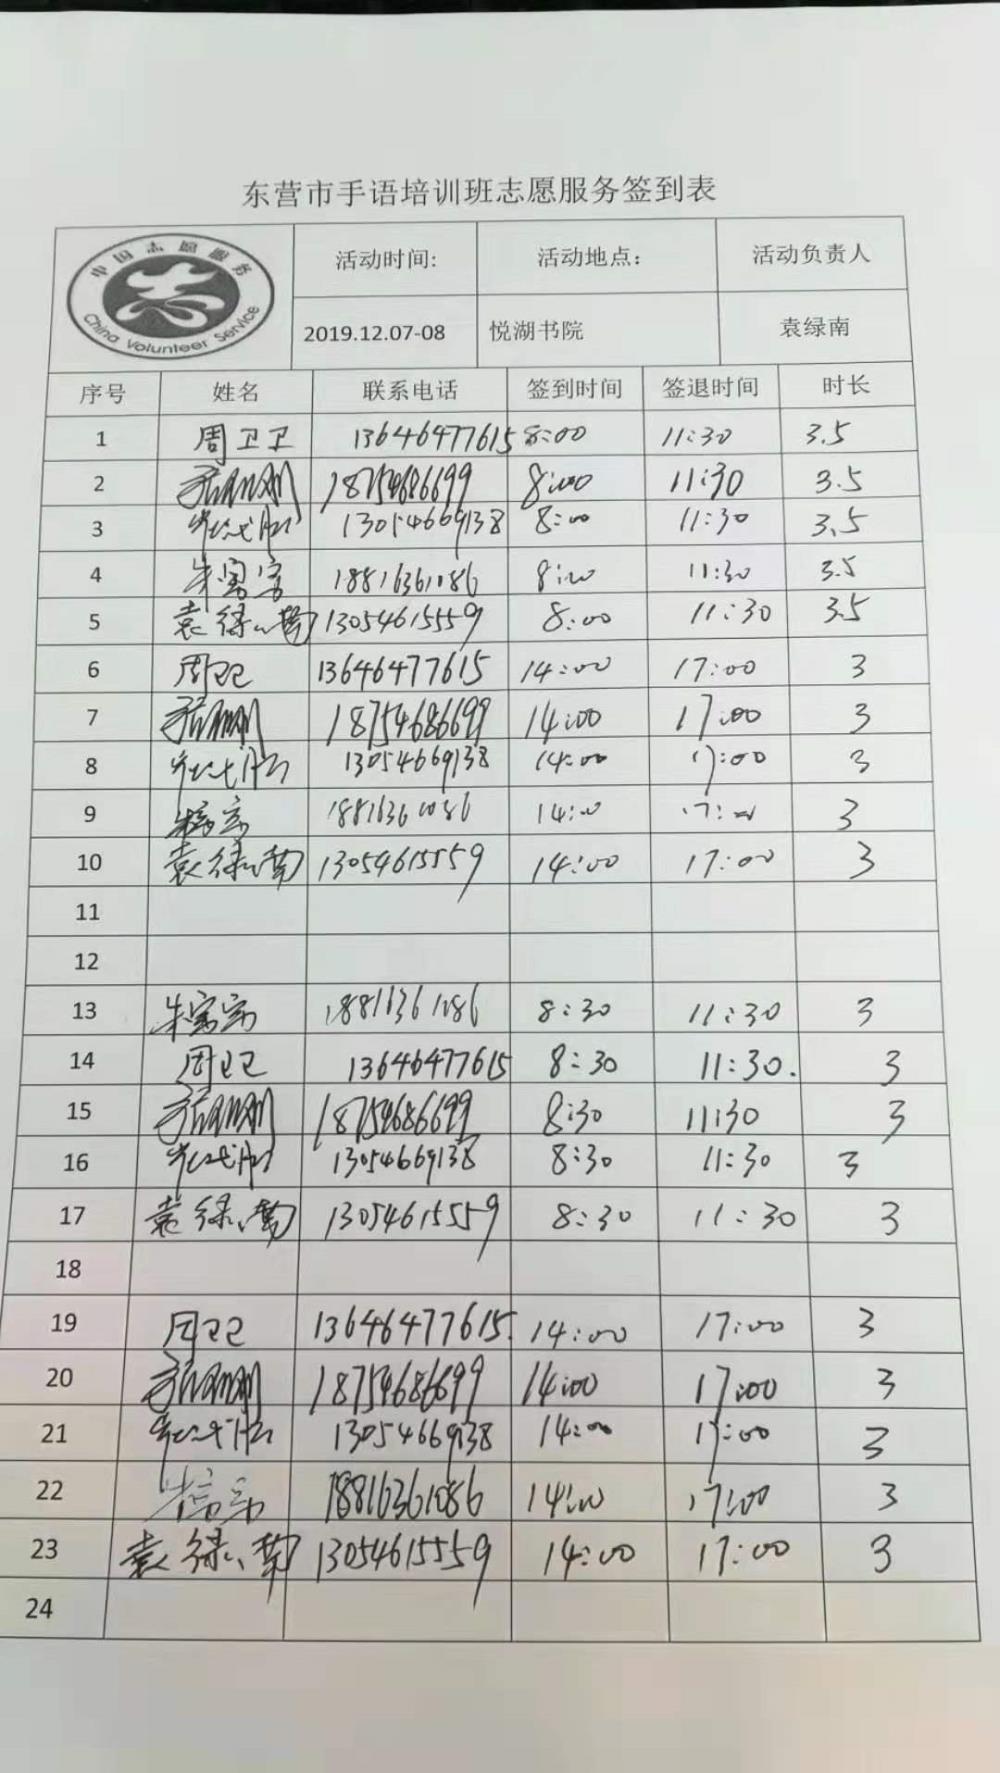 东营市手语培训班志愿服务签到表
中国志愿服务
China Volunteer Service
活动时间: 活动地点: 活动负责人
2019.12.07-08 悦湖书院 袁绿南
序号 姓名 联系电话 签到时间 签退时间 时长
1 周卫卫 13646477615 8:00 11:30 3.5
2 18754686699 8:00 11:30 3.5
3 13054669138 8:00 11:30 3.5
4 朱宝宝 18816361086 8:00 11:30 3.5
5 袁绿南 13054615559 8:00 11:30 3.5
6 周卫卫 13646477615 14:00 17:00 3
7 18754686699 14:00 17:00 3
8 13054669138 14:00 17:00 3
9 18816361086 14:00 17:00 3
10 袁绿南 13054615559 14:00 17:00 3
11
12
13 朱宝宝 18816361086 8:30 11:30 3
14 周卫卫 13646477615 8:30 11:30. 3
15 18754686699 8:30 11:30 3
16 13054669138 8:30 11:30 3
17 袁绿南 13054615559 8:30 11:30 3
18
19 周卫卫 13646477615. 14:00 17:00 3
20 18754686699 14:00 17:00 3
21 13054669138 14:00 17:00 3
22 18816361086 14:00 17:00 3
23 袁绿南 13054615559 14:00 17:00 3
24